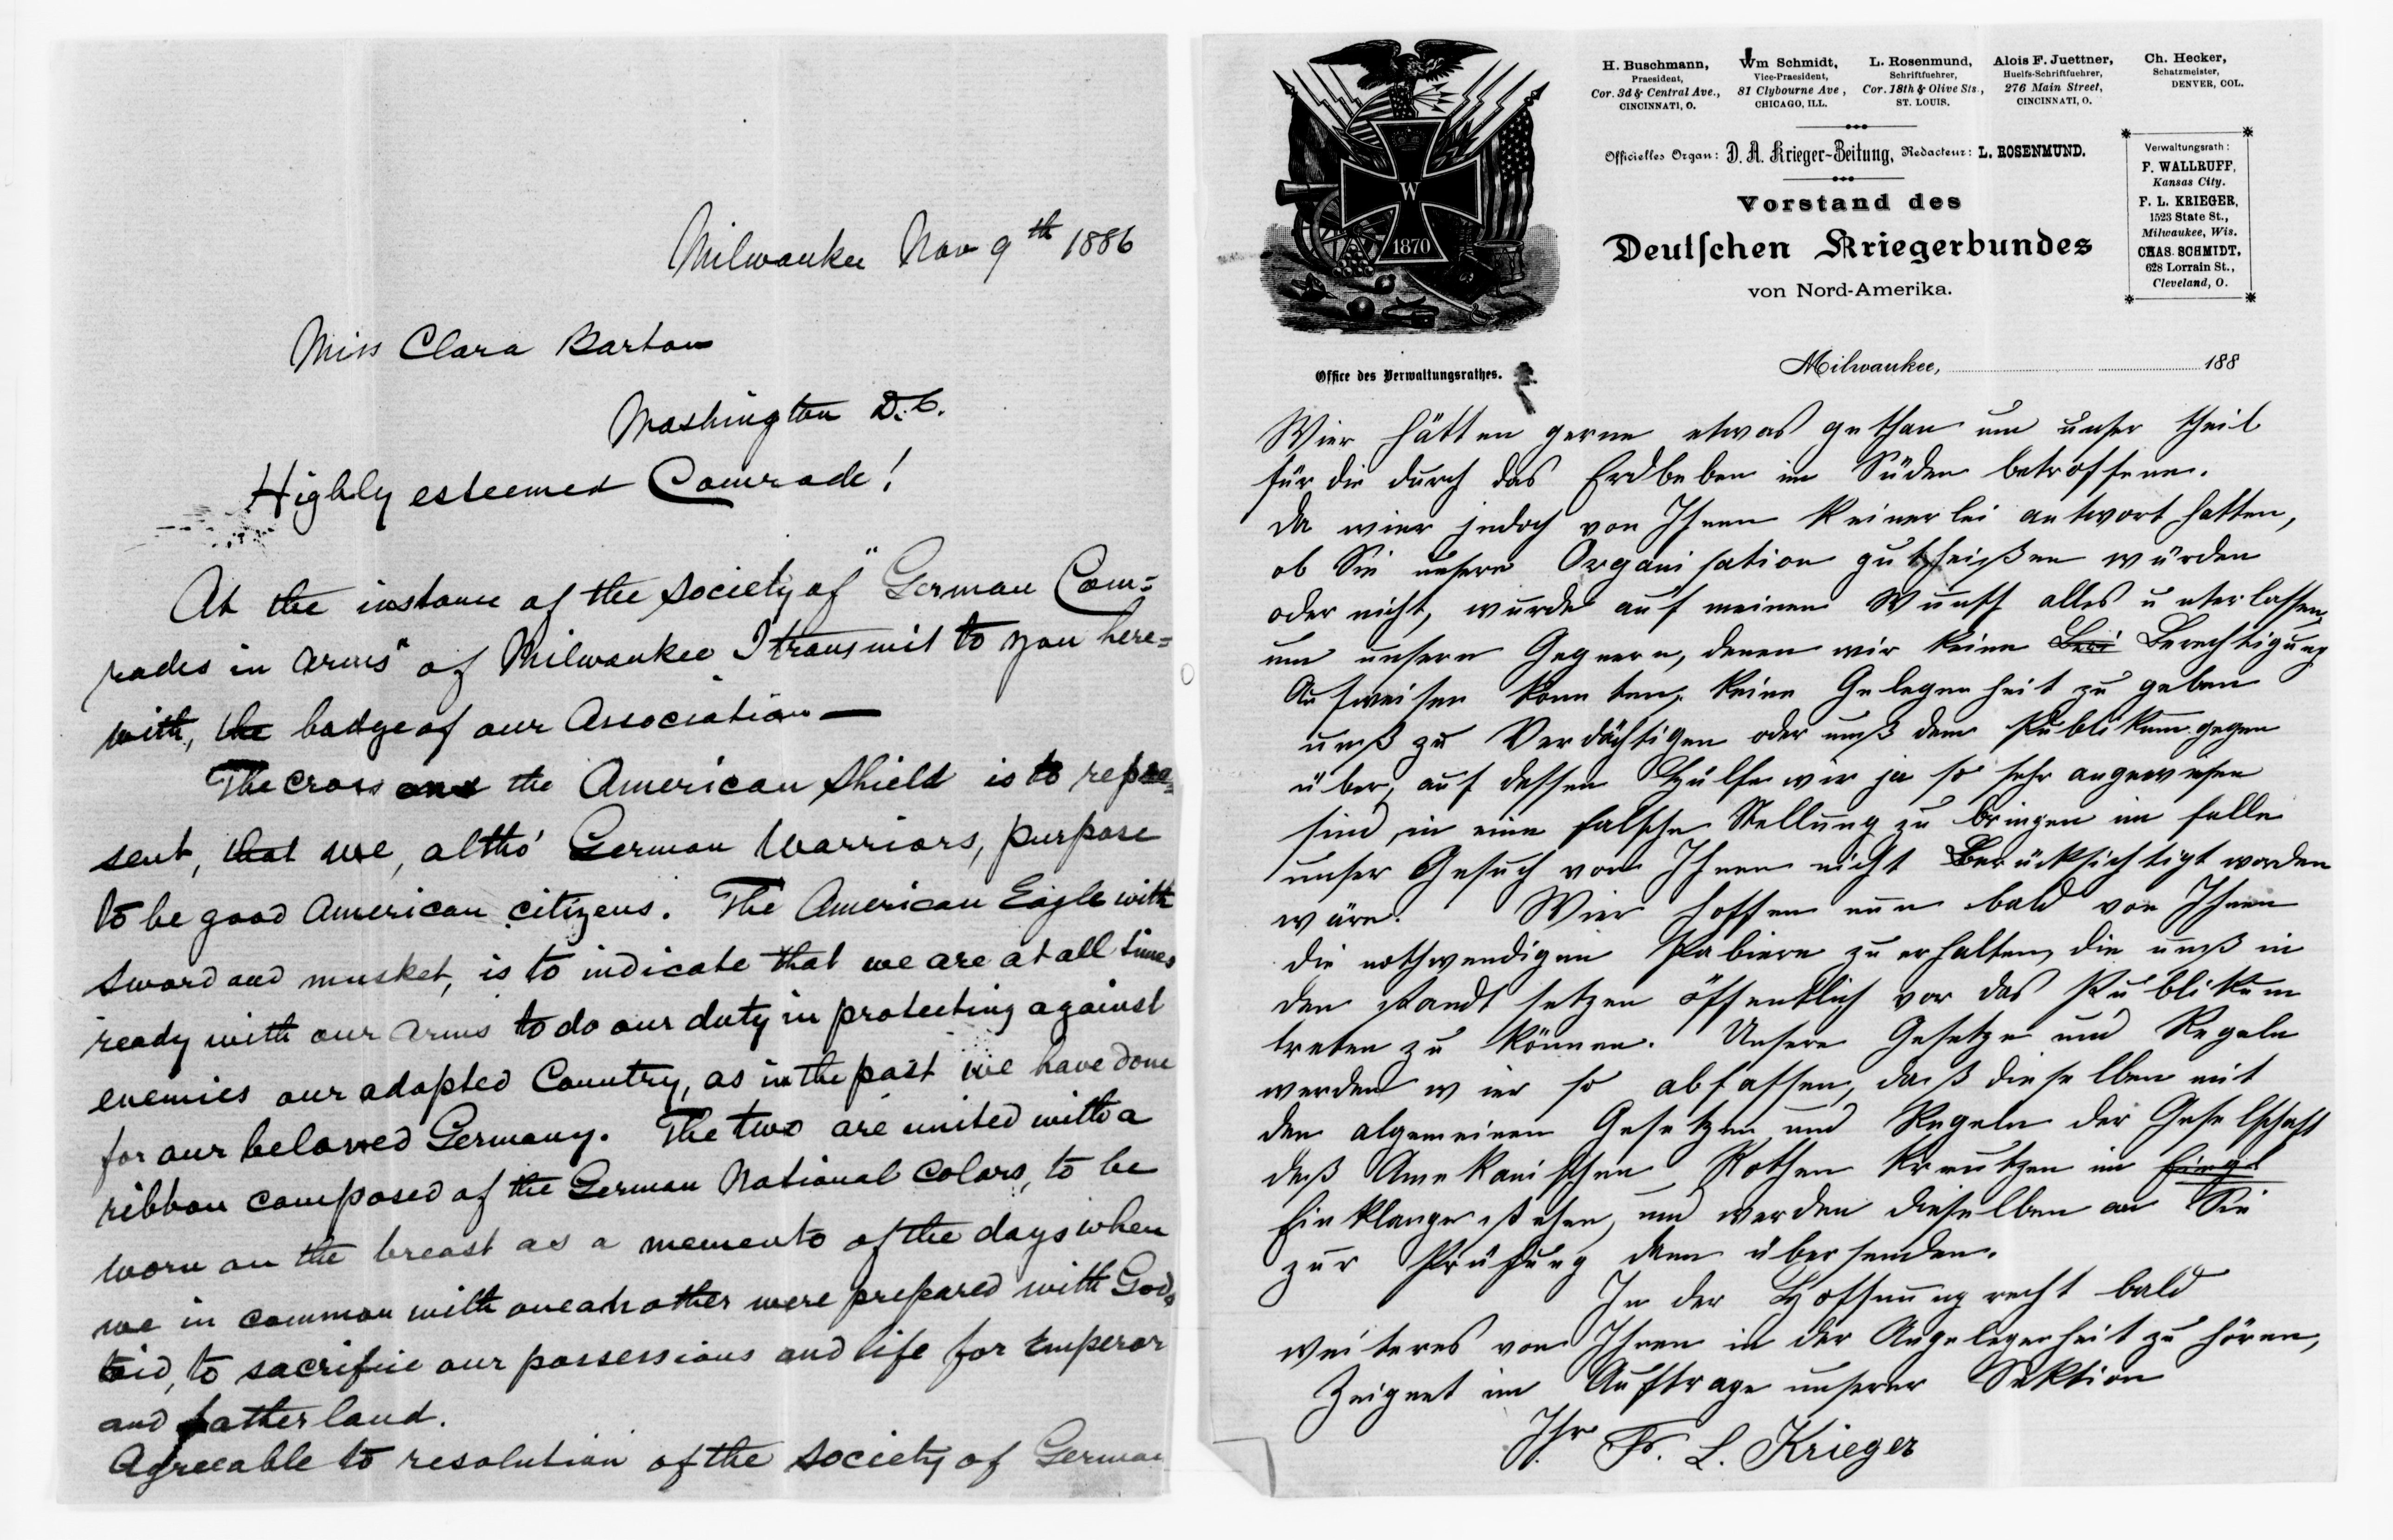 Milwaukee Nov 9th 1886
Miss Clara Barton
Washington D.C.
Highly esteemed Comrade!
At the instance of the society of "German Com=
rades in Arms" of Milwaukee I transmit to you here=
with, the badge of our Association —
The Cross and the American Shield is to repre=
sent, that we, altho' German Warriors, purpose
to be good American citizens. The American Eagle with
sword and musket, is to indicate that we are at all times
ready with our arms to do our duty in protecting against
enemies our adopted Country, as in the past we have done
for our beloved Germany. The two are united with a
ribbon composed of the German National Colors, to be
worn on the breast as a memento of the days when
we in common with oneanother were prepared with Gods
aid, to sacrifice our possessions and life for Emperor
and fatherland.
Agreeable to resolution of the society of German
W
1870
H. Buschmann,
Praesident,
Cor. 3d & Central Ave.,
CINCINNATI, O.
Wm Schmidt,
Vice-Praesident,
81 Clybourne Ave,
CHICAGO, ILL.
L. Rosenmund,
Schriftfuehrer,
Cor. 18th & Olive Sts.,
ST. LOUIS.
Alois F. Juettner,
Huelfs-Schriftfuehrer,
276 Main Street,
CINCINNATI, O.
Ch. Hecker,
Schatzmeister,
DENVER, COL.
Officielles Organ: D. A. Krieger-Zeitung, Redacteur: L. ROSENMUND.
Vorstand des
Deutschen Kriegerbundes
von Nord-Amerika.
Verwaltungsrath:
F. WALLRUFF,
Kansas City.
F. L. KRIEGER,
1523 State St.,
Milwaukee, Wis.
CHAS. SCHMIDT,
628 Lorrain St.,
Cleveland, O.
Office des Verwaltungsrathes.
Milwaukee, 188
Wier hätten gerne etwas gethan um unser theil
für die durch das Erdbeben im Süden betroffenen.
da wier jedoch von Ihnen keinerlei antwort hatten,
ob Sie unsere Organisation gutheißen würden
oder nicht, wurde auf meinen Wunsch alles unterlassen,
um unsern Gegnern, denen wir keine Beri Berechtigung
Aufweisen konnten, keine Gelegenheit zu geben
unß zu Verdächtigen oder unß dem Publikum gegen
über, auf dessen Hülfe wir ja so sehr angewiesen
sind, in eine falsche Stellung zu bringen im falle
unser Gesuch von Ihnen nicht Berücksichtigt worden
wäre. Wier hoffen nun bald von Ihnen
die nothwendigen Pabiere zu erhalten, die unß in
den standt setzen öffentlich vor das Publikum
treten zu können. Unsere Gesetze und Regeln
werden wier so abfassen, daß dieselben mit
den algemeinen Gesetzen und Regeln der Geselschaft
deß Amekanischen Rothen Kreutzen im Eingl
Einklange stehen, und werden dieselben an Sie
zur Prüfung dann übersenden.
In der Hoffnung recht bald
weiteres von Ihnen in der Angelegenheit zu hören,
Zeignet im Auftrage unserer Sektion
Ihr Fr. L. Krieger